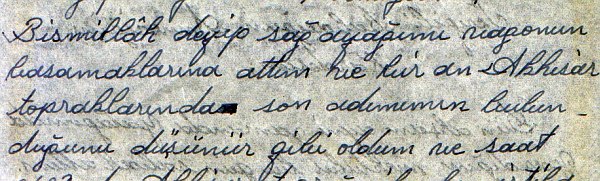 Bismillâh deyip sağ ayağımı vagonun
basamaklarına attım ve bir an Akhisar
topraklarında son adımımın bulun-
duğunu düşünür gibi oldum ve saat